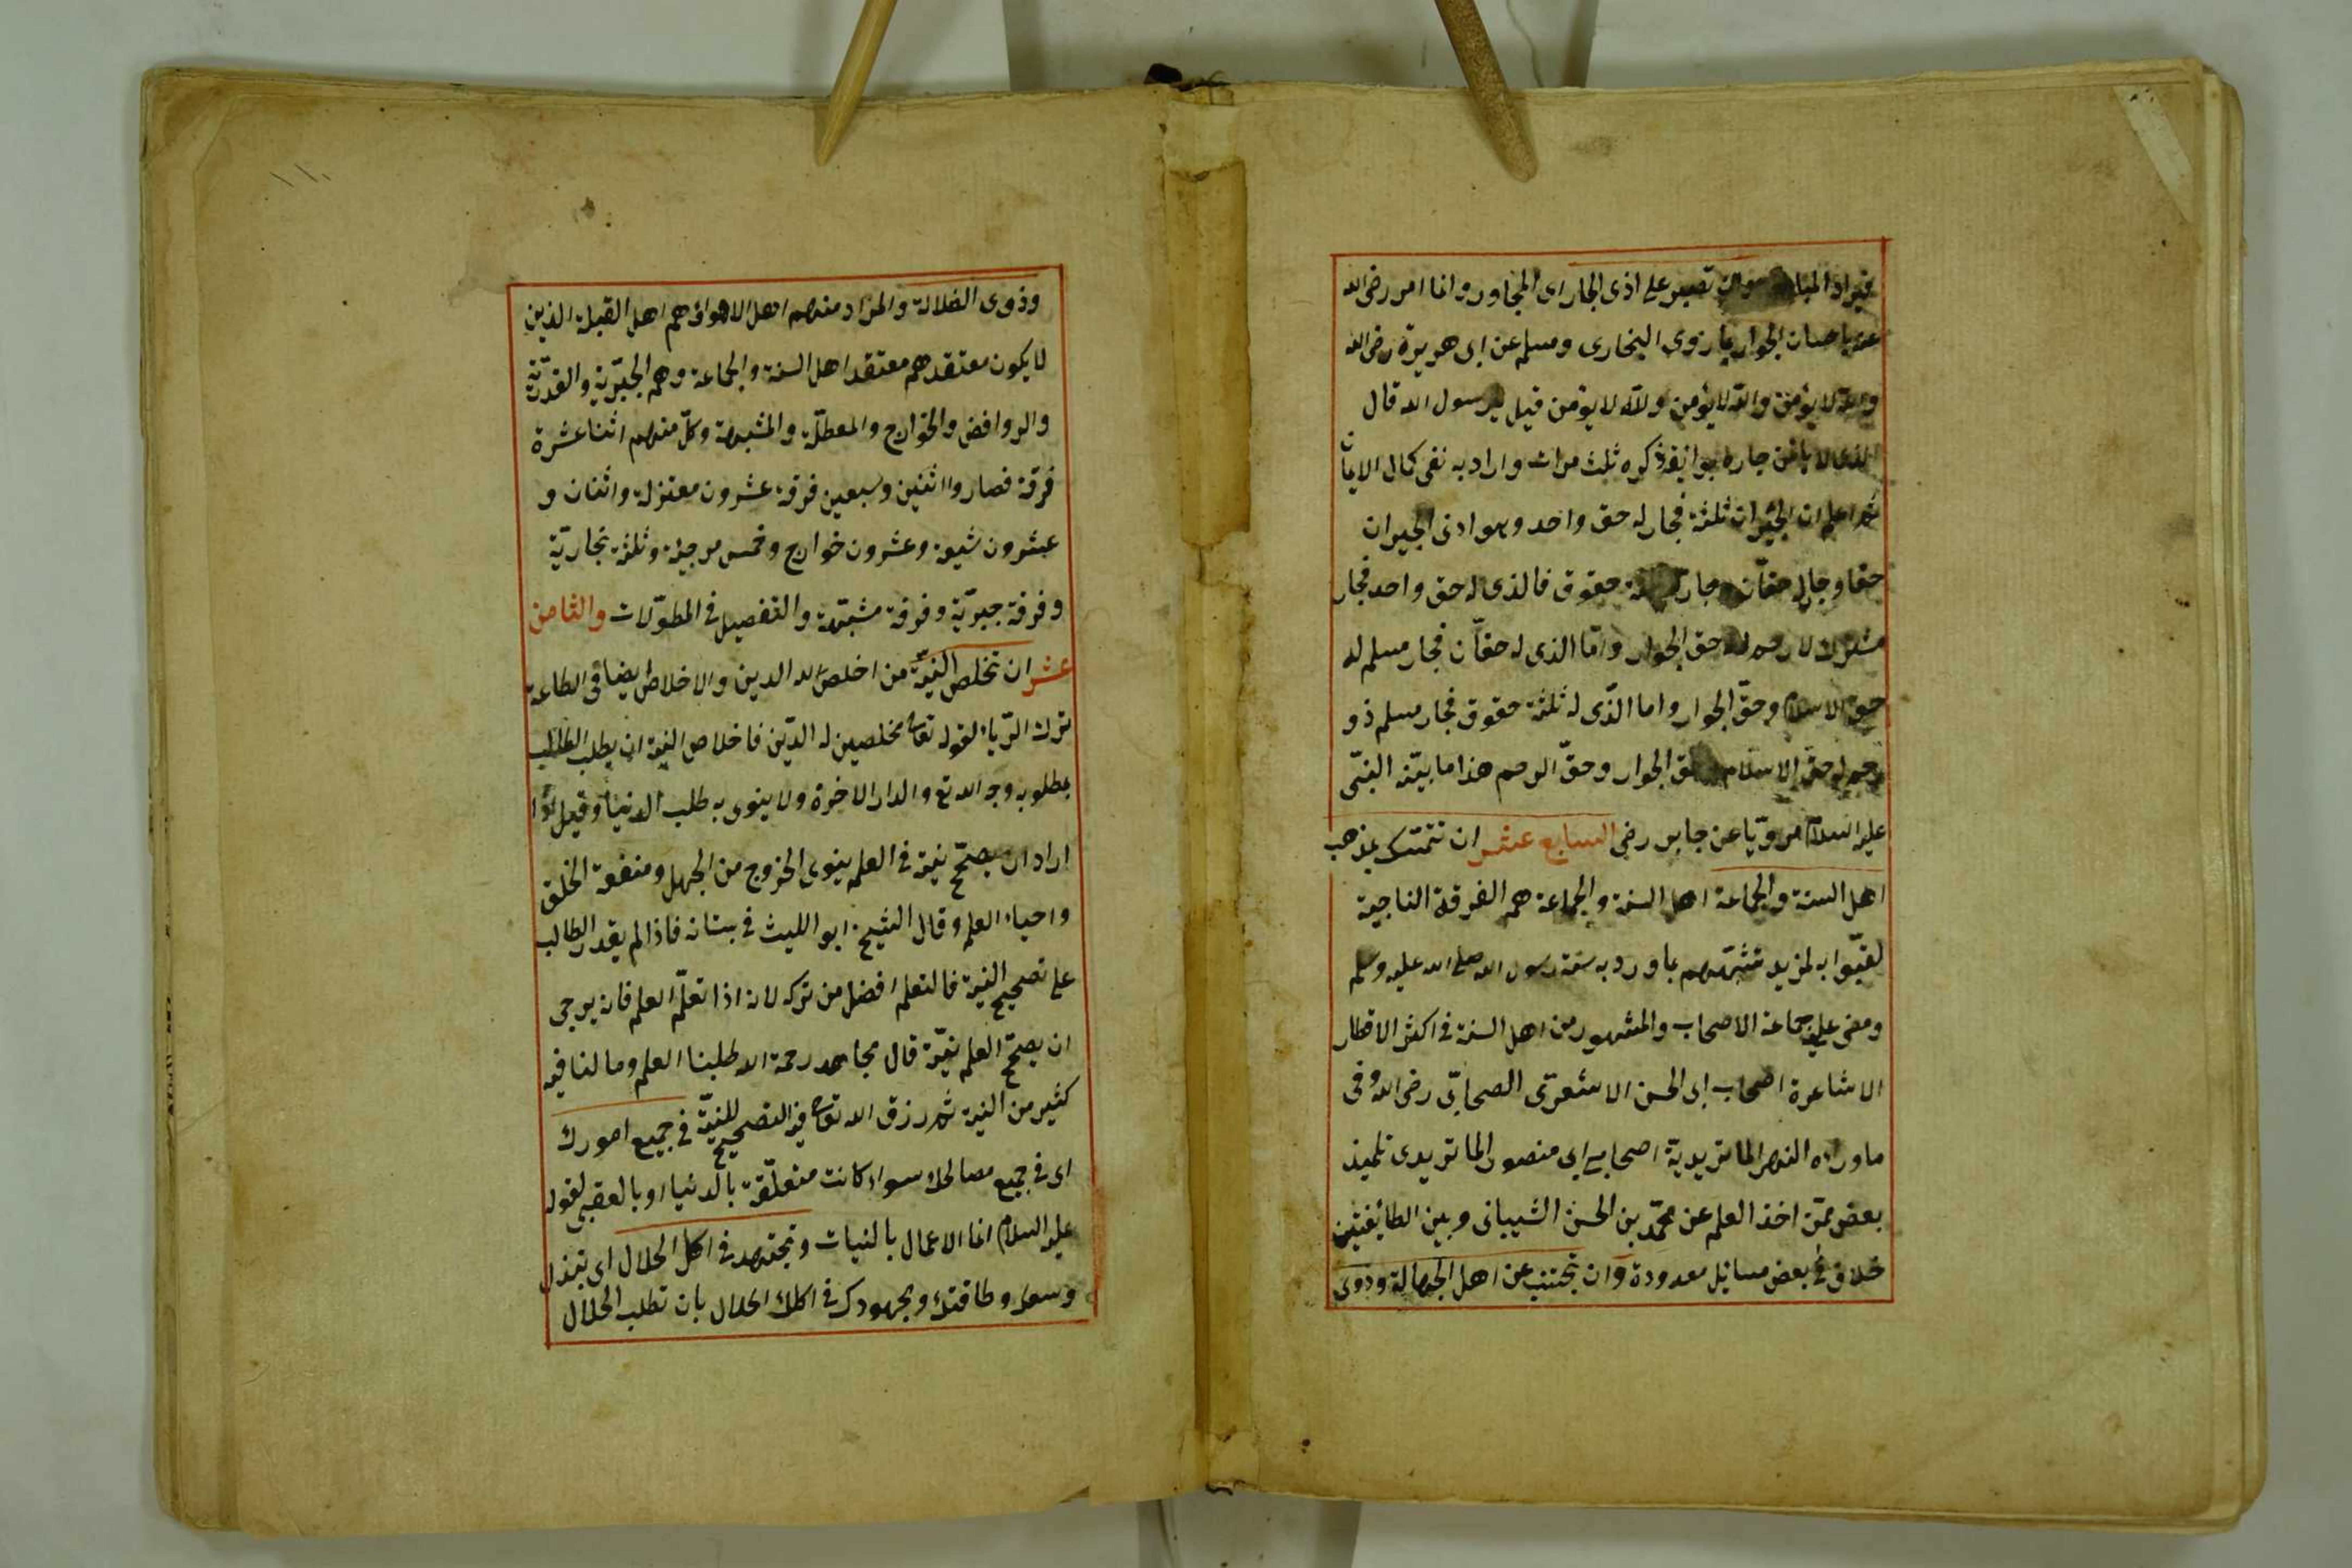 تصبر على اذى الجار اى المجاور وانما امر رضى الله
عنه باحسان الجوار بما روى البخارى ومسلم عن ابى هريرة رضى الله
والله لا يؤمن والله لا يؤمن والله لا يؤمن قيل من يرسول الله قال
الذى لا يأمن جاره بوائقه ذكره ثلث مرات واراد به نفى كمال الايمان
ثم اعلم ان الجيران ثلثة فجار له حق واحد وهو ادنى الجيران
حقا وجار له حقان وجار حقوق فالذى له حق واحد فجار
مشرك لا رحم له حق الجوار واما الذى له حقان فجار مسلم له
حق الاسلام وحق الجوار واما الذى له ثلثة حقوق فجار مسلم ذو
رحم له حق الاسلام وحق الجوار وحق الرحم هذا ما بينه النبى
عليه السلام مرويا عن جابر رضى السابع عشر ان تتمسك بمذهب
اهل السنة والجماعة اهل السنة والجماعة هم الفرقة الناجية
لقبوا به لمزيد تشبثهم بما ورد به سنة رسول الله صلى الله عليه وسلم
ومضى عليه جماعة الاصحاب والمشهور من اهل السنة فى اكثر الاقطار
الاشاعرة اصحاب ابى الحسن الاشعرى الصحابى رضى الله وفى
ما وراء النهر الماتريدية اصحاب ابى منصور الماتريدى تلميذ
بعض ممن اخذ العلم عن محمد بن الحسن الشيبانى وبين الطائفتين
خلاف فى بعض مسائل معدودة وان تجتنب عن اهل الجهالة وذوى
وذوى الضلالة والمراد منهم اهل الاهواء هم اهل القبلة الذين
لا يكون معتقدهم معتقد اهل السنة والجماعة وهم الجبرية والقدرية
والروافض والخوارج والمعطلة والمشبهة وكل منهم اثنا عشرة
فرقة فصاروا اثنين وسبعين فرقة عشرون معتزلة واثنان و
عشرون شيعة وعشرون خوارج وخمس مرجئة وثلثة نجارية
وفرقة جبرية وفرقة مشبهة والتفصيل فى المطولات والثامن
عشر ان تخلص النية من اخلص لله الدين والاخلاص ايضا فى الطاعة
ترك الرياء لقوله تعالى مخلصين له الدين فاخلاص النية ان يطلب الطالب
بمطلوبه وجه الله تع والدار الاخرة ولا ينوى به طلب الدنيا وقيل اذا
اراد ان يصحح نيته فى العلم ينوى الخروج من الجهل ومنفعة الخلق
واحياء العلم وقال الشيخ ابو الليث فى بستانه فاذا لم يقدر الطالب
على تصحيح النية فالتعلم افضل من تركه لانه اذا تعلم العلم فانه يرجى
ان يصحح العلم نيته قال مجاهد رحمة الله طلبنا العلم وما لنا فيه
كثير من النية ثم رزق الله تعالى فيه التصحيح للنية فى جميع امورك
اى فى جميع مصالحك سواء كانت متعلقة بالدنيا او بالعقبى لقوله
عليه السلام انما الاعمال بالنيات وتجتهد فى اكل الحلال اى تبذل
وسعك وطاقتك ومجهودك فى اكلك الحلال بان تطلب الحلال